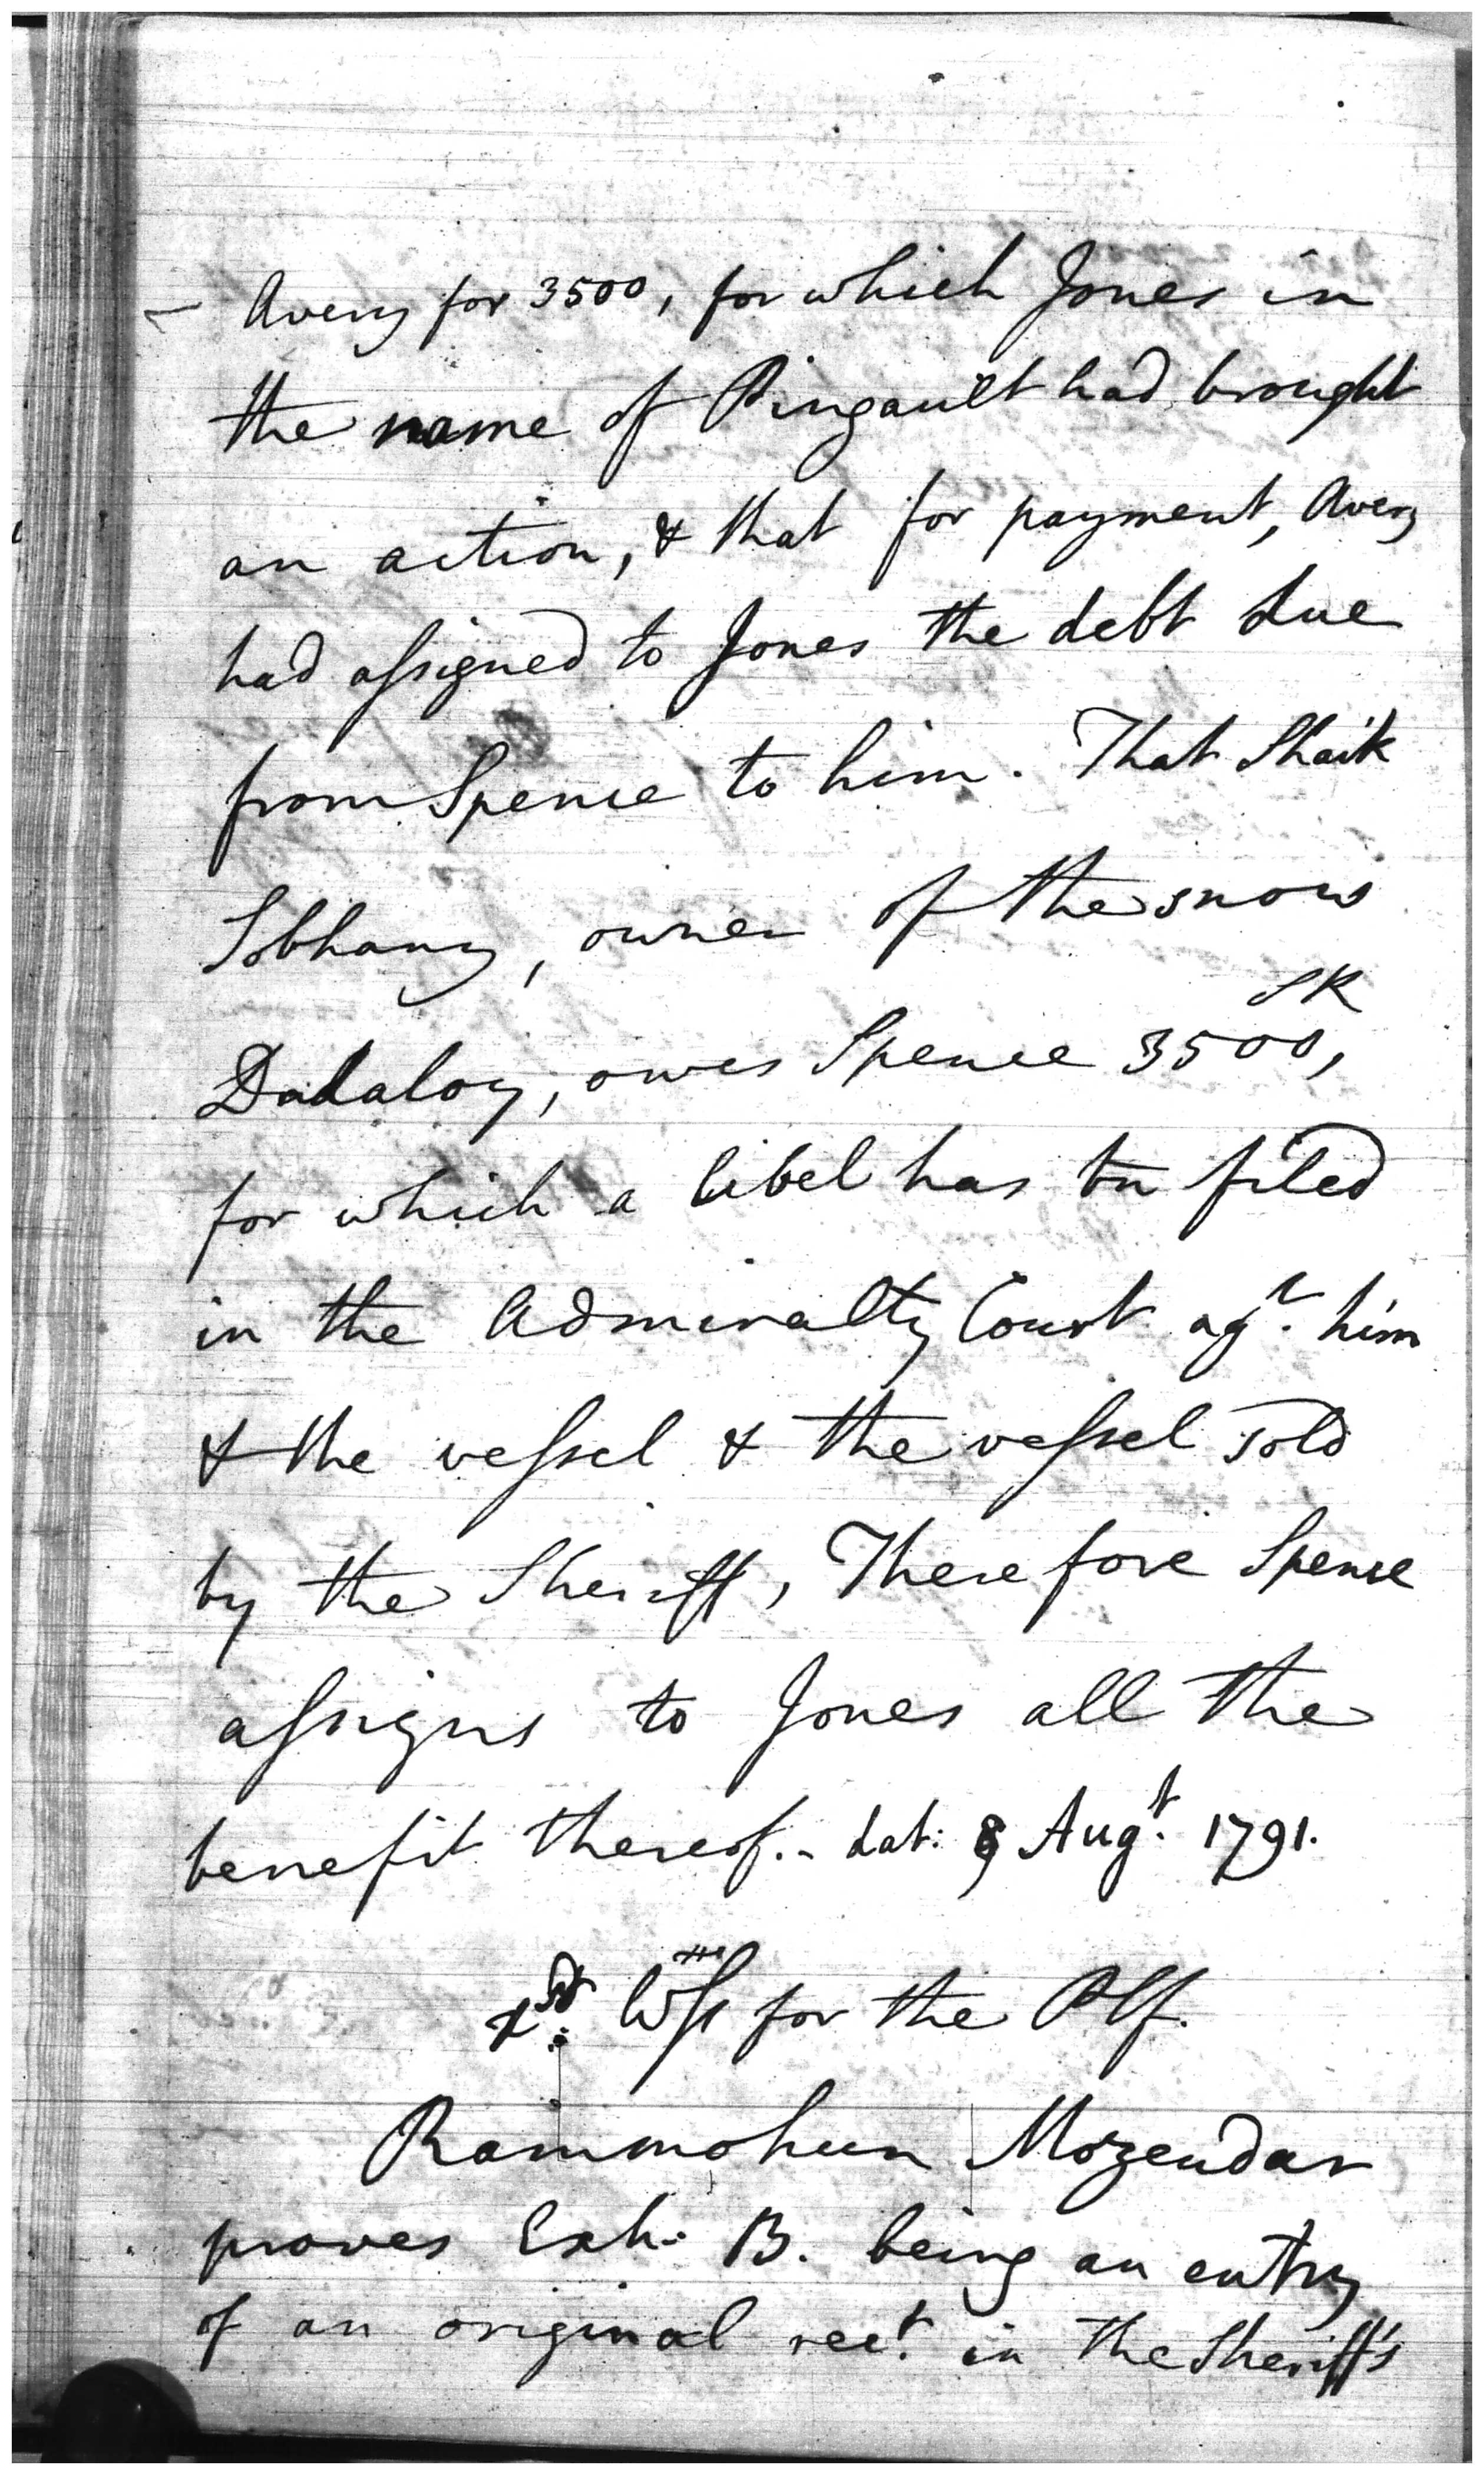 Avery for 3500, for which Jones in
the name of Pingault had brought
an action, & that for payment, Avery
had assigned to Jones the debt due
from Spence to him. That Shaik
Sobhany, owner of the snow
SR
Dadaloy, owes Spence 3500,
for which a libel has bn filed
in the Admiralty Court agt. him
& the vessel & the vessel sold
by the Sheriff, Therefore Spence
assigns to Jones all the
benefit thereof.- dat: 9 Augt. 1791.
Wss for the Plf.
Rammohun Mozendar
proves Exh: B. being an entry
of an original rect. in the Sheriff's